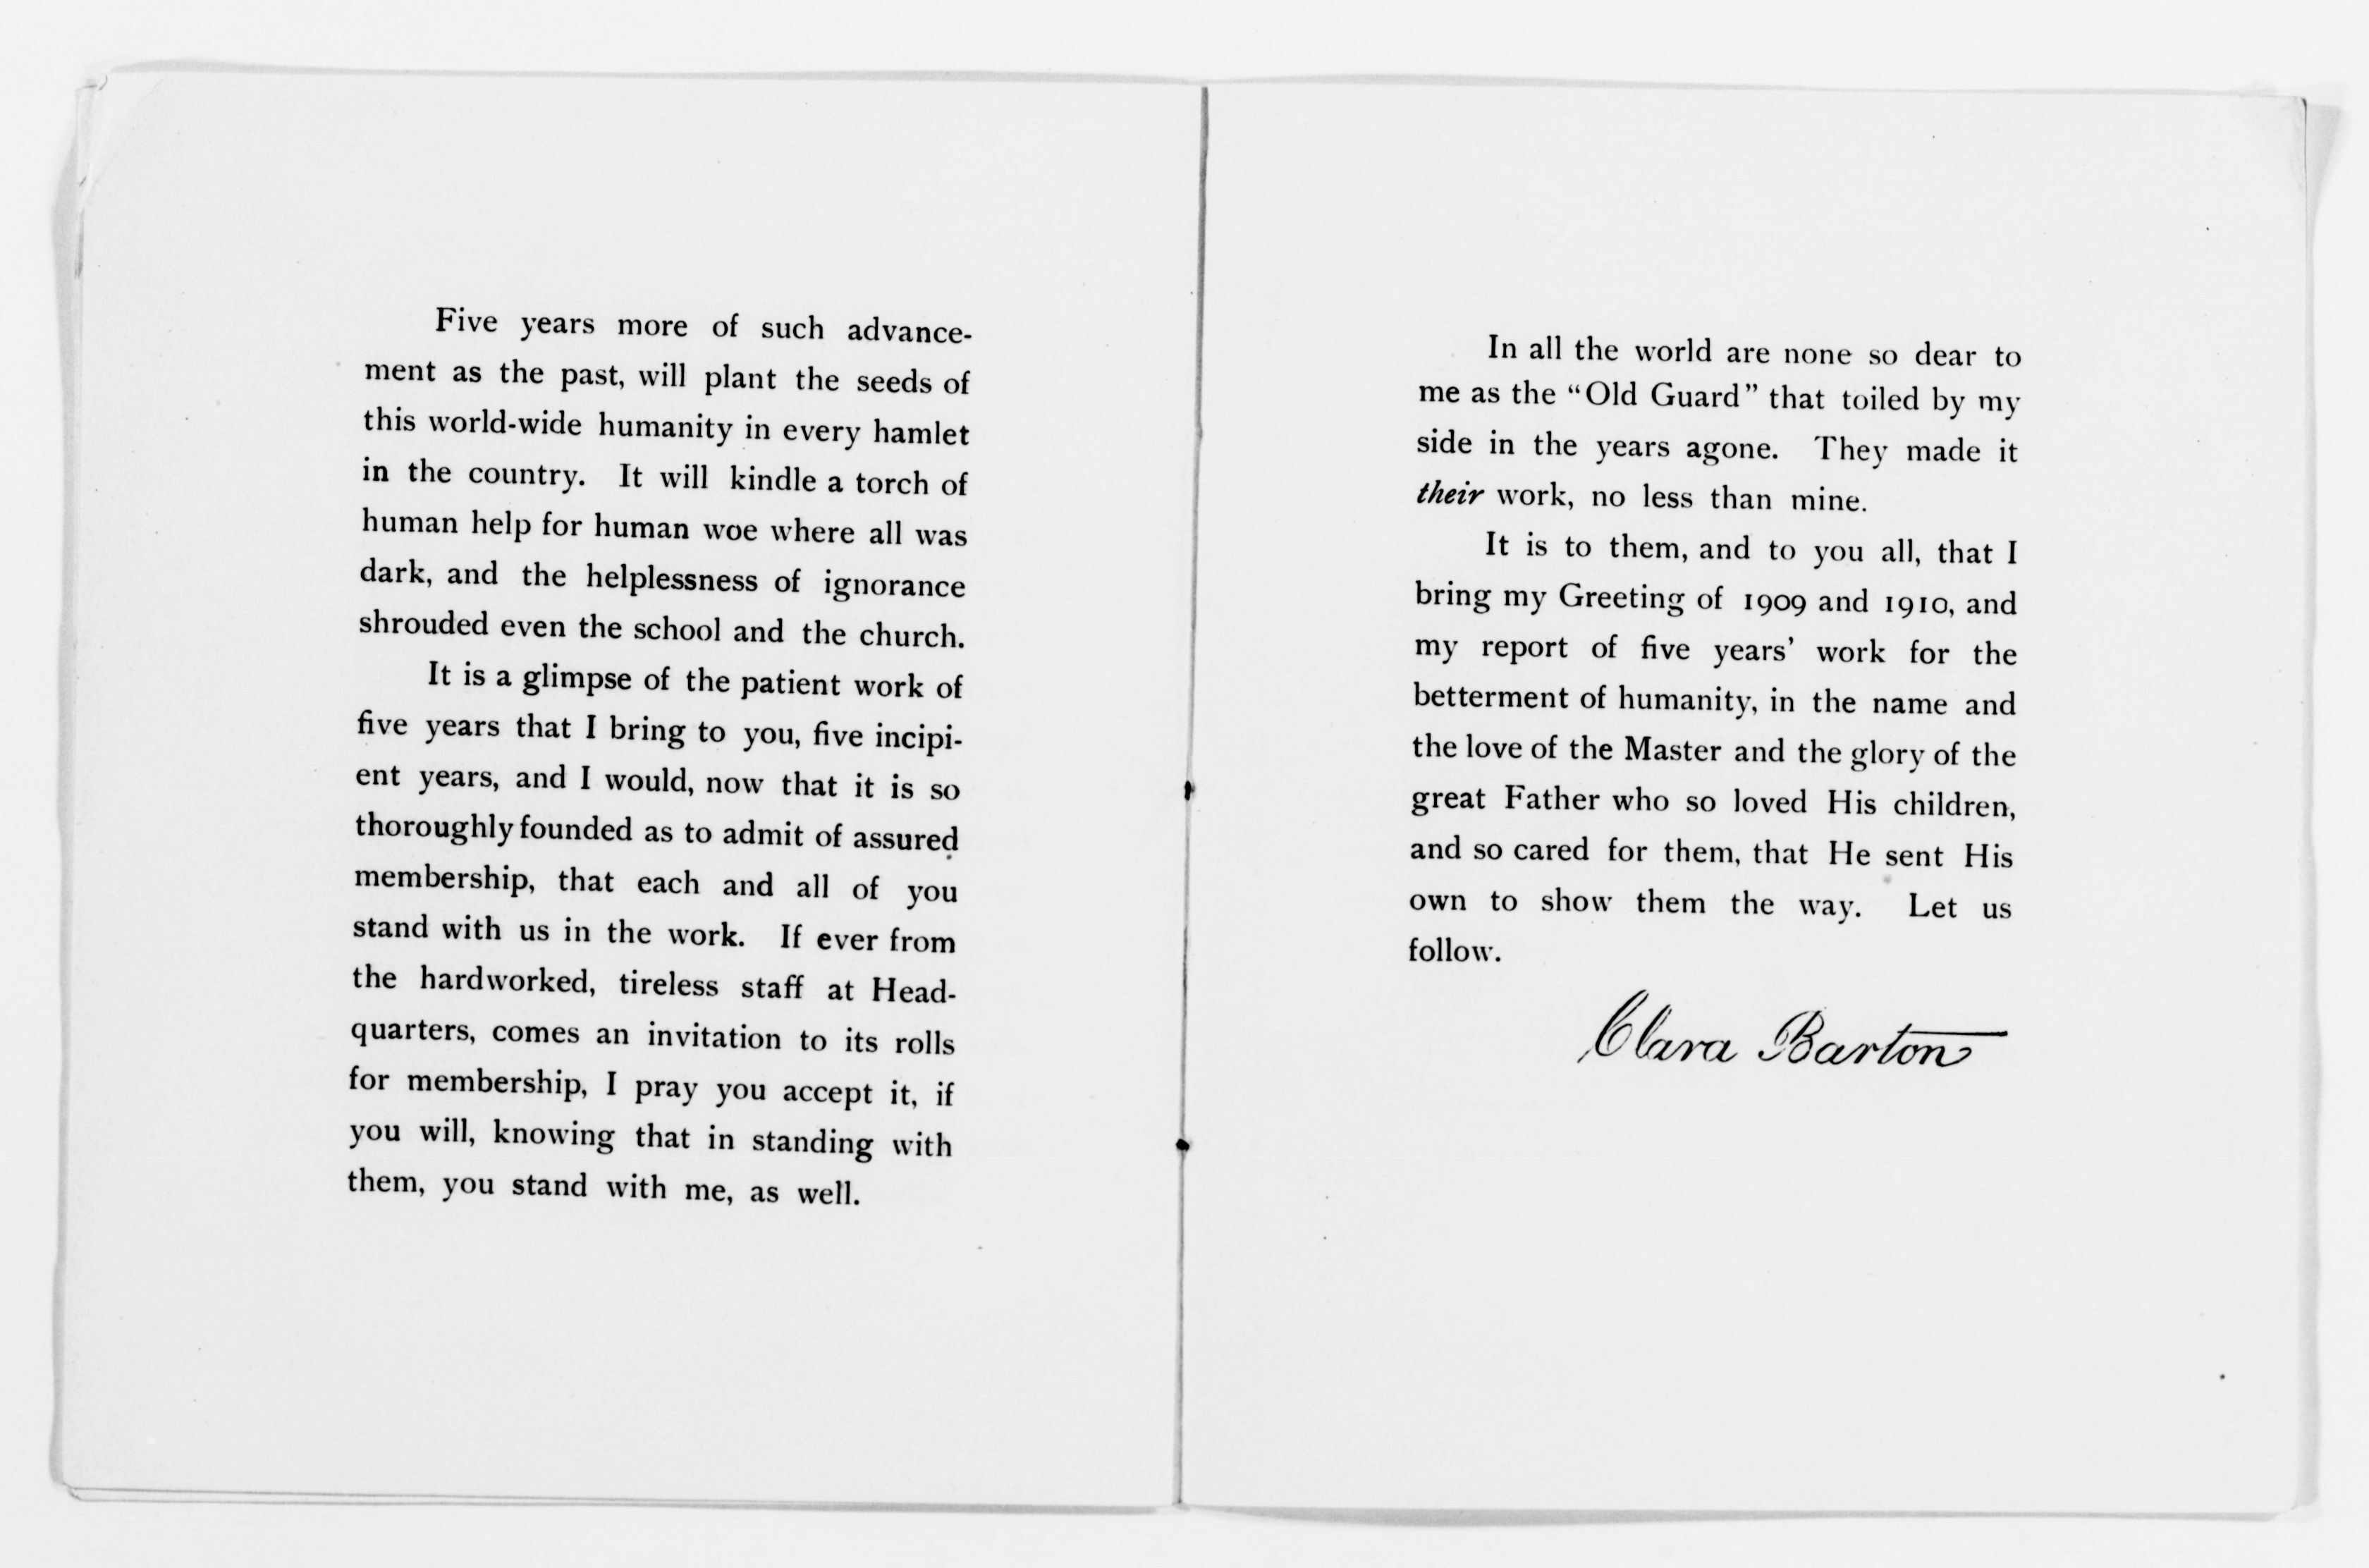 Five years more of such advance-
ment as the past, will plant the seeds of
this world-wide humanity in every hamlet
in the country. It will kindle a torch of
human help for human woe where all was
dark, and the helplessness of ignorance
shrouded even the school and the church.
It is a glimpse of the patient work of
five years that I bring to you, five incipi-
ent years, and I would, now that it is so
thoroughly founded as to admit of assured
membership, that each and all of you
stand with us in the work. If ever from
the hardworked, tireless staff at Head-
quarters, comes an invitation to its rolls
for membership, I pray you accept it, if
you will, knowing that in standing with
them, you stand with me, as well.
In all the world are none so dear to
me as the “Old Guard” that toiled by my
side in the years agone. They made it
their work, no less than mine.
It is to them, and to you all, that I
bring my Greeting of 1909 and 1910, and
my report of five years’ work for the
betterment of humanity, in the name and
the love of the Master and the glory of the
great Father who so loved His children,
and so cared for them, that He sent His
own to show them the way. Let us
follow.
Clara Barton